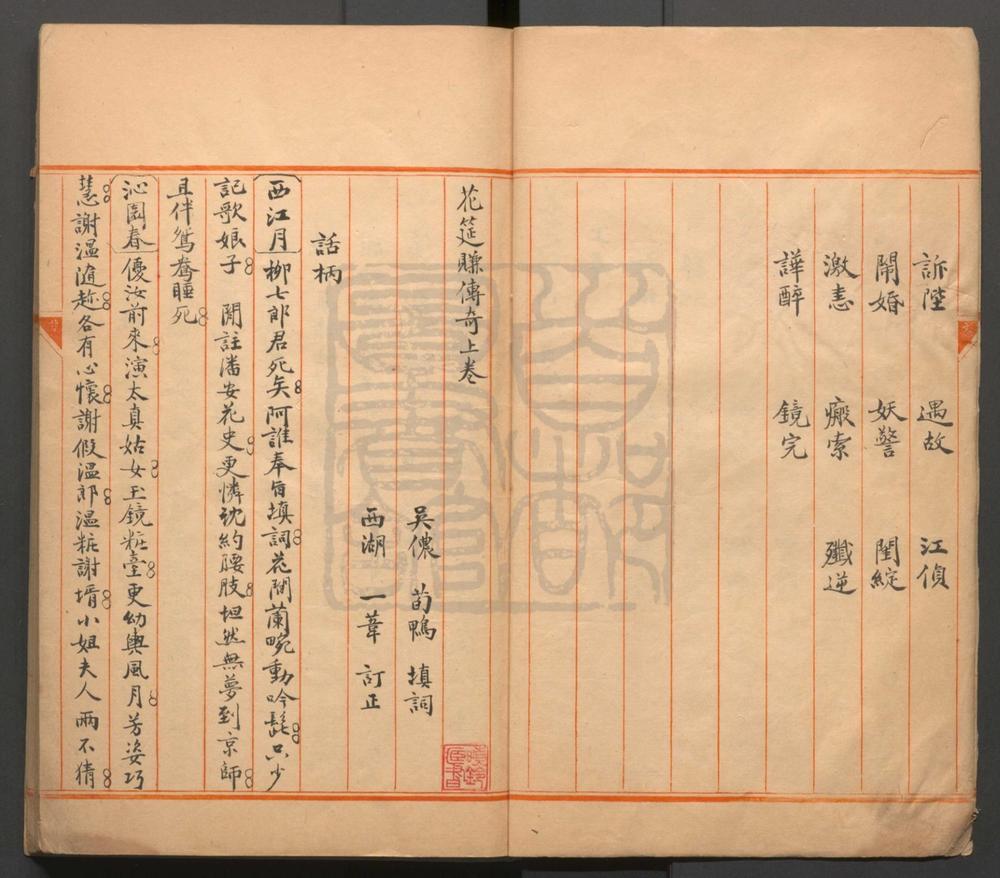 訴陞 遇故 江偵
鬧婚 妖警 閨綻
激恚 瘢索 殲逆
譁醉 鏡完
花筵賺傳奇上卷
吳儂 荀鴨 填詞
西湖 一葦 訂正
話柄
西江月 柳七郎君死矣阿誰奉旨填詞花間蘭畹動吟髭只少
記歌娘子 閒註潘安花史更憐沈約腰肢坦然無夢到京師
且伴鴛鴦睡死
沁園春 優汝前來演太真姑女玉鏡粧臺更幼輿風月芳姿巧
慧謝溫隨趂各有心懷謝假溫郎溫粧謝壻小姐夫人兩不猜